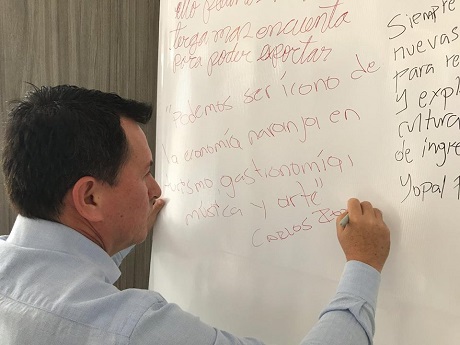 tenga mas encuenta
para poder exportar
"Podemos ser ícono de
la economía naranja en
turismo gastronomía,
música y arte"
CARLOS
Siempre
nuevas
para re
y expl
cultura
de ingre
Yopal